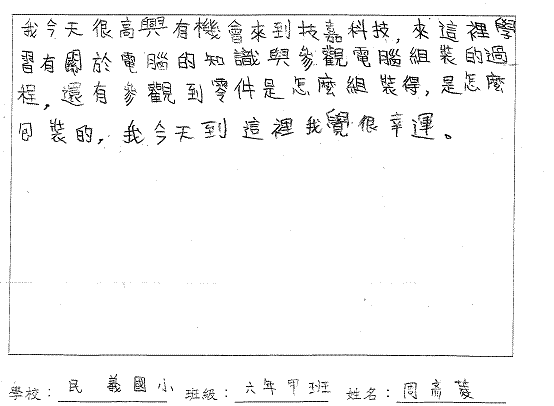 我今天很高興有機會來到技嘉科技，來這裡學
習有關於電腦的知識與參觀電腦組裝的過
程，還有參觀到零件是怎麼組裝得，是怎麼
包裝的，我今天到這裡我覺很幸運。
學校：民義國小 班級：六年甲班 姓名：周彥菱